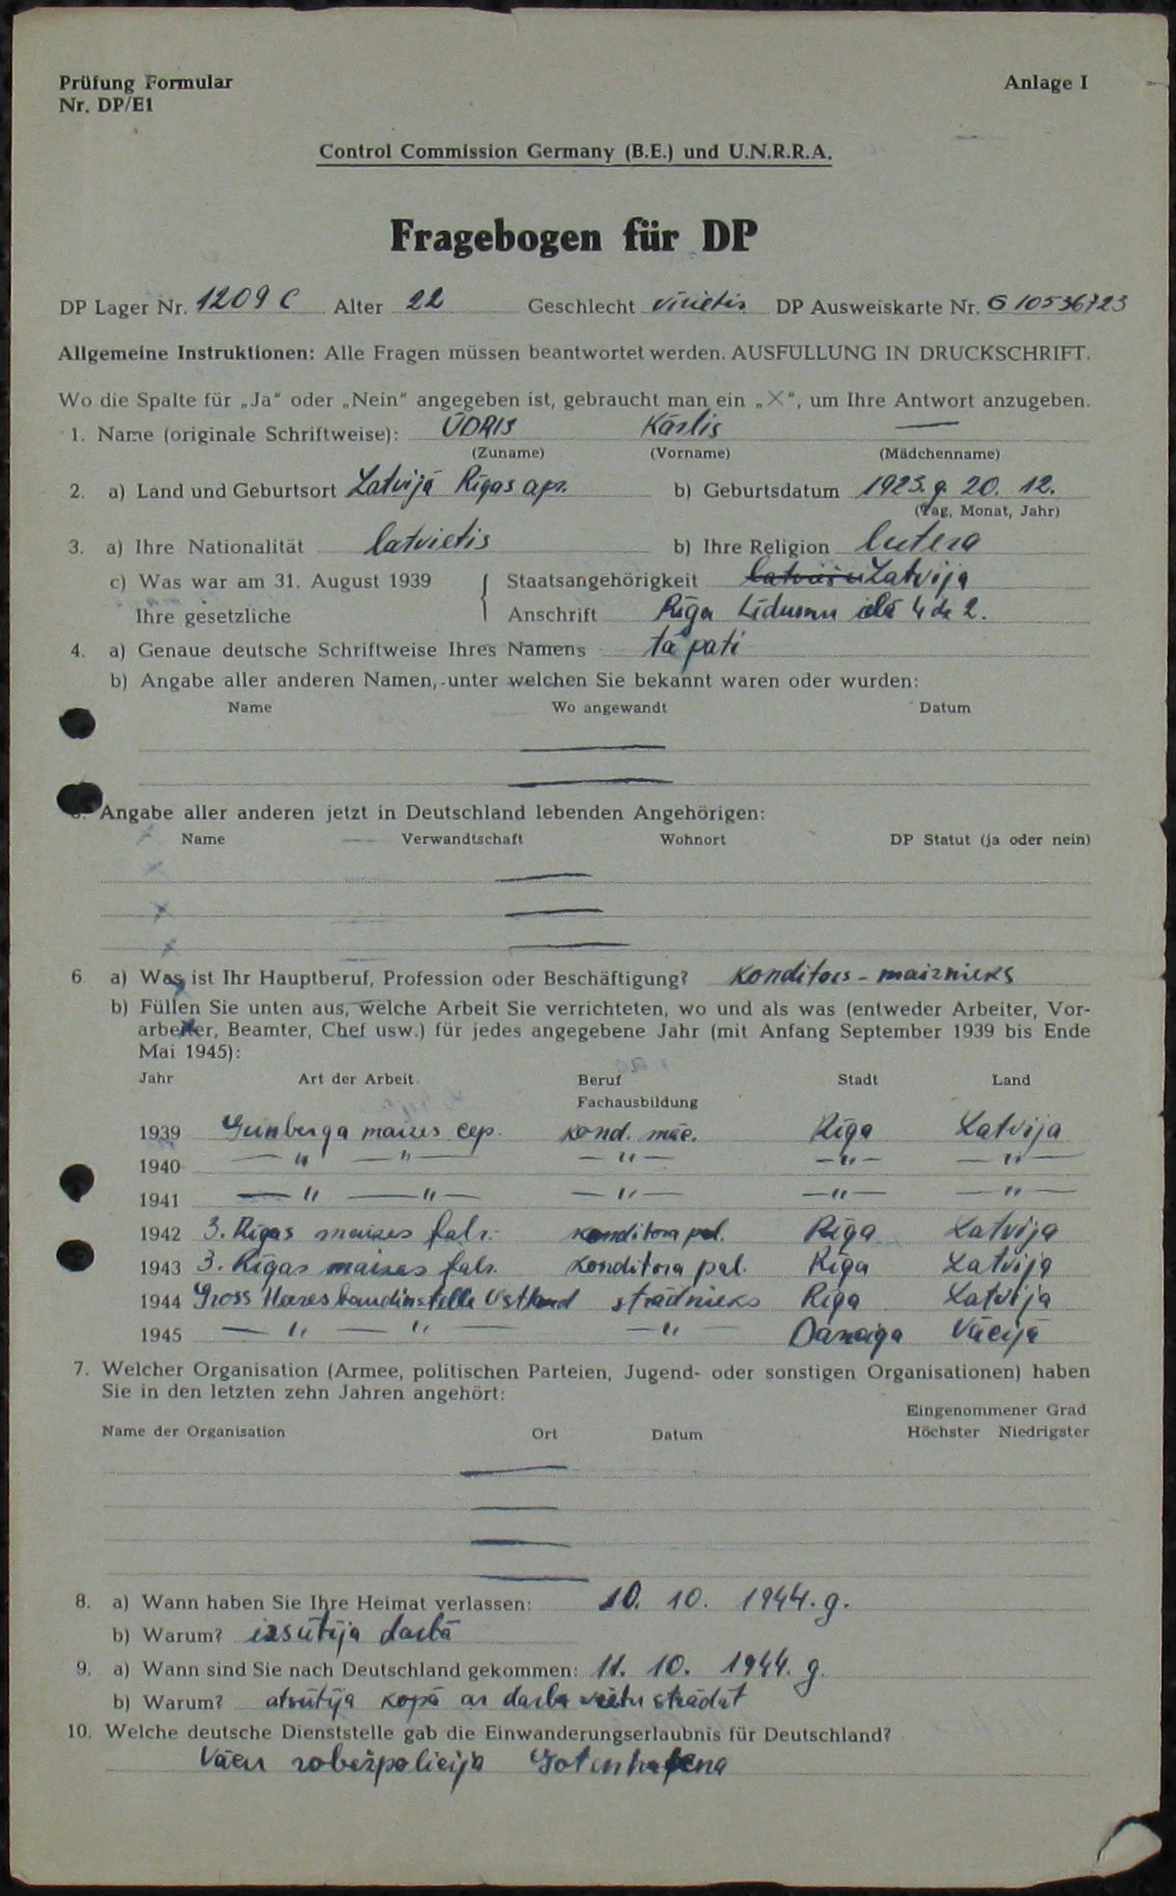 Prüfung Formular Anlage I
Nr. DP/E1
Control Commission Germany (B.E.) und U.N.R.R.A.
Fragebogen für DP
DP Lager Nr. 1209 C Alter 22 Geschlecht vīrietis DP Ausweiskarte Nr. G 10536723
Allgemeine Instruktionen: Alle Fragen müssen beantwortet werden. AUSFÜLLUNG IN DRUCKSCHRIFT.
Wo die Spalte für „Ja“ oder „Nein“ angegeben ist, gebraucht man ein „X“, um Ihre Antwort anzugeben.
1. Name (originale Schriftweise): ŪDRIS Kārlis —
(Zuname) (Vorname) (Mädchenname)
2. a) Land und Geburtsort Latvijā Rīgas apr. b) Geburtsdatum 1923. g. 20. 12.
(Tag, Monat, Jahr)
3. a) Ihre Nationalität latvietis b) Ihre Religion lutera
c) Was war am 31. August 1939 Staatsangehörigkeit Latvija
Ihre gesetzliche Anschrift Rīga Līdumu ielā 4 dz 2.
4. a) Genaue deutsche Schriftweise Ihres Namens tā pati
b) Angabe aller anderen Namen, unter welchen Sie bekannt waren oder wurden:
Name Wo angewandt Datum
—
—
Angabe aller anderen jetzt in Deutschland lebenden Angehörigen:
Name Verwandtschaft Wohnort DP Statut (ja oder nein)
—
—
—
6 a) Was ist Ihr Hauptberuf, Profession oder Beschäftigung? Konditors - maiznieks
b) Füllen Sie unten aus, welche Arbeit Sie verrichteten, wo und als was (entweder Arbeiter, Vor-
arbeiter, Beamter, Chef usw.) für jedes angegebene Jahr (mit Anfang September 1939 bis Ende
Mai 1945):
Jahr Art der Arbeit Beruf Stadt Land
Fachausbildung
1939 Grinberga maizes cep. kond. māc. Rīga Latvija
1940 — " — " — — " — — " — — " —
1941 — " — " — — " — — " — — " —
1942 3. Rīgas maizes fabr. konditora pal. Rīga Latvija
1943 3. Rīgas maizes fabr. konditora pal. Rīga Latvija
1944 Gross Ostland strādnieks Rīga Latvija
1945 — " — " — — " — Danciga Vācijā
7. Welcher Organisation (Armee, politischen Parteien, Jugend- oder sonstigen Organisationen) haben
Sie in den letzten zehn Jahren angehört:
Eingenommener Grad
Name der Organisation Ort Datum Höchster Niedrigster
—
—
—
—
8. a) Wann haben Sie Ihre Heimat verlassen: 10. 10. 1944. g.
b) Warum? izsūtīja darbā
9. a) Wann sind Sie nach Deutschland gekommen: 11. 10. 1944. g.
b) Warum? atsūtīja kopā ar darba vietu strādāt
10. Welche deutsche Dienststelle gab die Einwanderungserlaubnis für Deutschland?
Vācu robežpolicija Gotenhafena